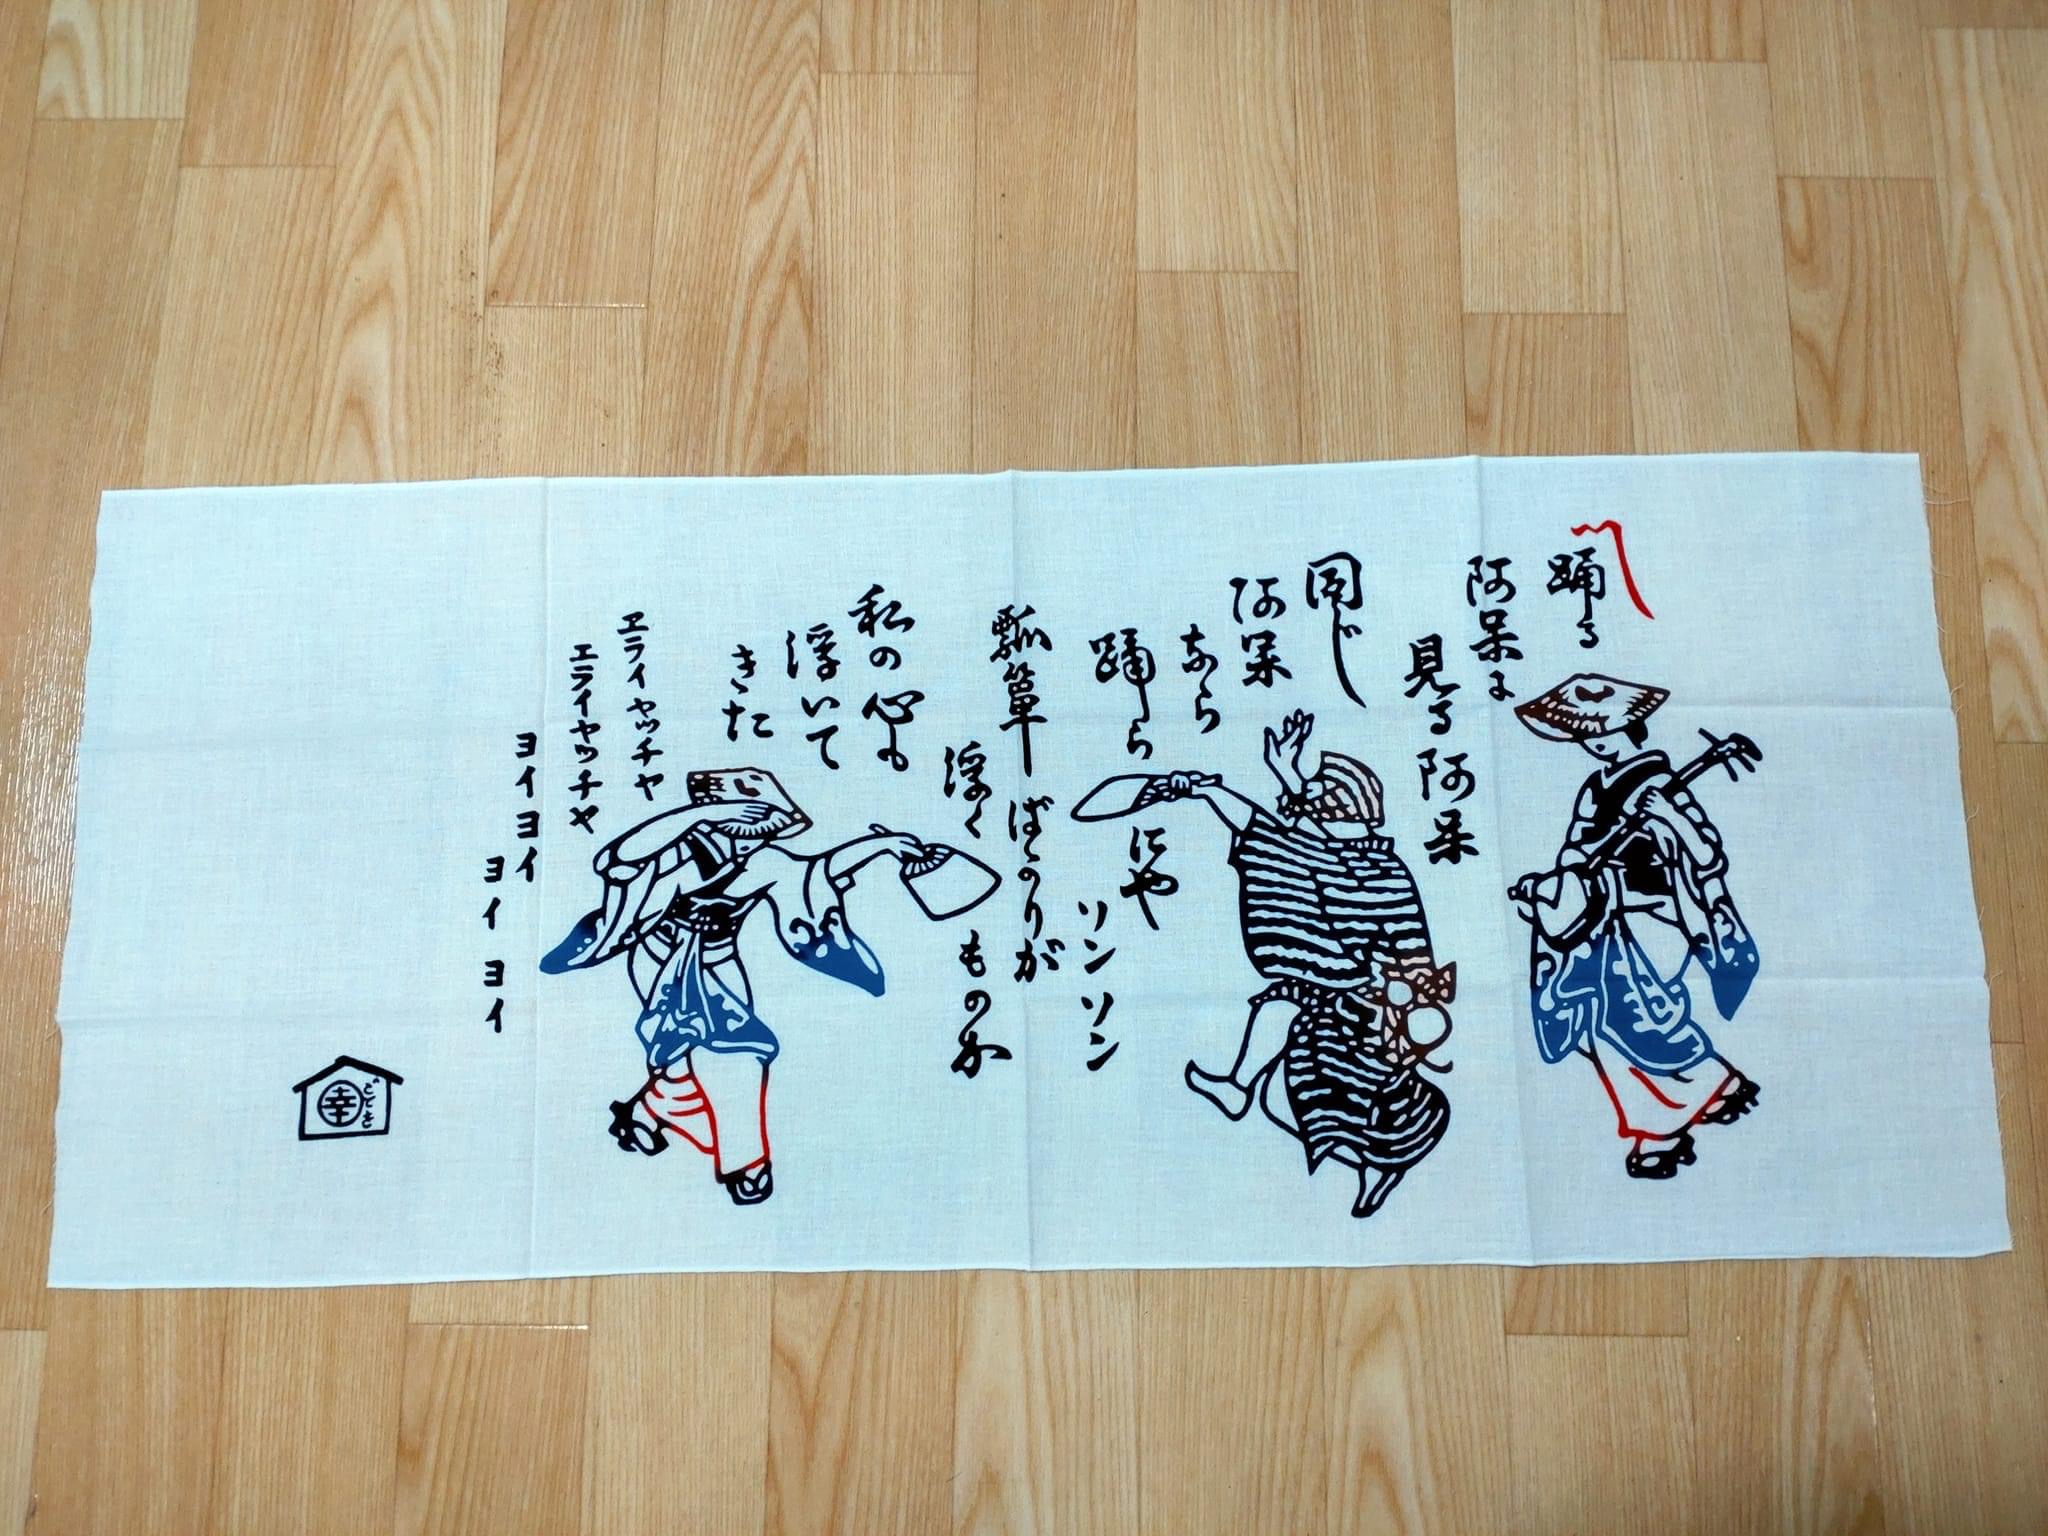 〽踊る
阿呆に
見る阿呆
同じ
阿呆
なら
踊らにや
ソンソン
瓢箪ばかりが
浮くものか
私の心も
浮いて
きた
ヱライヤッチヤ
エライヤッチヤ
ヨイヨイ
ヨイヨイ
幸